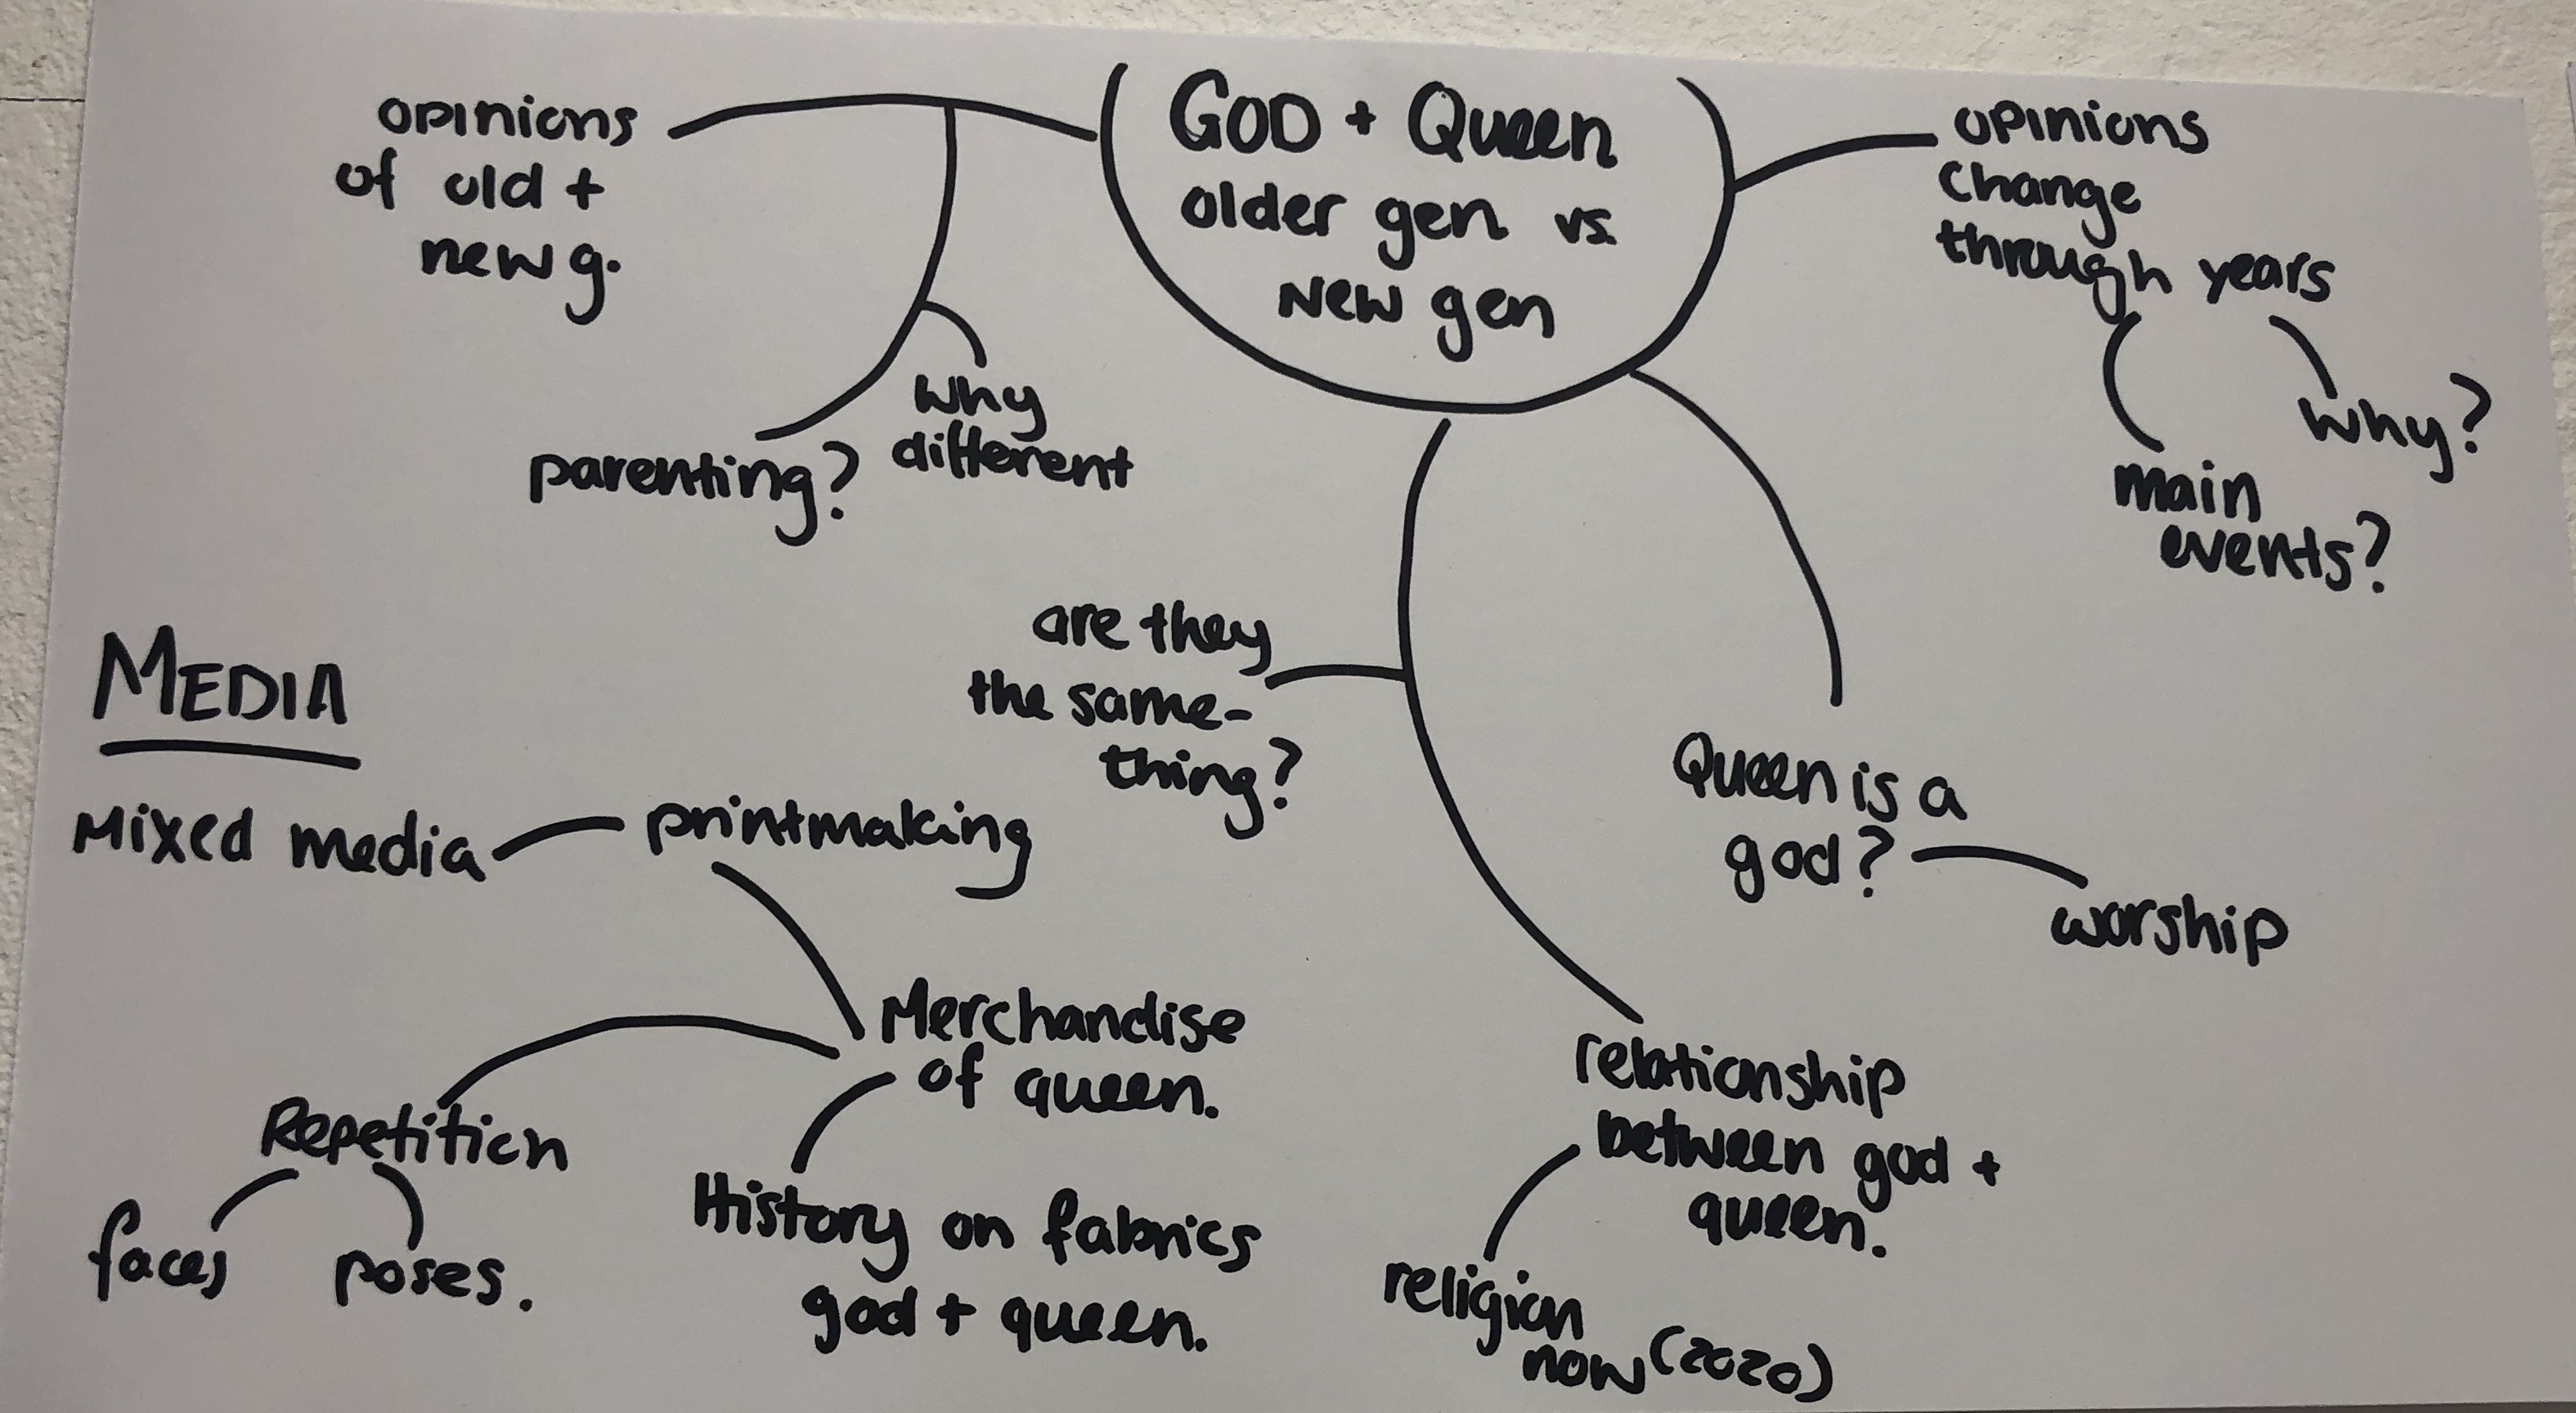 GOD + Queen
older gen vs.
New gen
opinions
of old +
new g.
why
different
parenting?
opinions
change
through years
why?
main
events?
are they
the same-
thing?
Queen is a
god?
worship
relationship
between god +
queen.
religion
now (2020)
MEDIA
Mixed media
printmaking
Merchandise
of queen.
Repetition
faces
poses.
History on fabrics
god + queen.